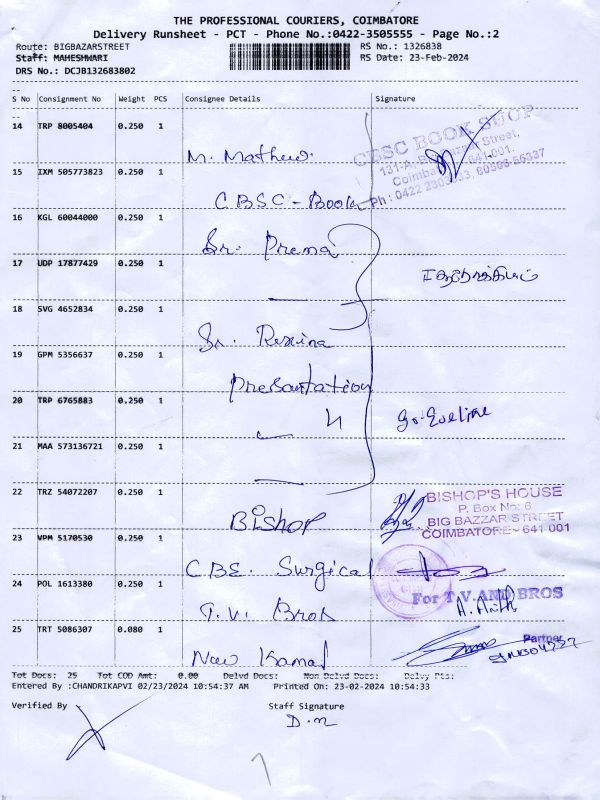 THE PROFESSIONAL COURIERS, COIMBATORE
Delivery Runsheet - PCT - Phone No.:0422-3505555 - Page No.:2
Route: BIGBAZARSTREET RS No.: 1326838
Staff: MAHESHWARI RS Date: 23-Feb-2024
DRS No.: DCJB132683802
S No Consignment No Weight PCS Consignee Details Signature
14 TRP 8005404 0.250 1 M. Mathew
CBSC BOOK SHOP
131-A, Big Bazaar Street,
Coimbatore - 641 001.
15 IXM 505773823 0.250 1 CBSC - Book
16 KGL 60044000 0.250 1 Sr. Prema
17 UDP 17877429 0.250 1
18 SVG 4652834 0.250 1 Sr. Resvina
19 GPM 5356637 0.250 1 Presantation
20 TRP 6765883 0.250 1 Sr. Eveline
21 MAA 573136721 0.250 1
22 TRZ 54072207 0.250 1 Bishop
BISHOP'S HOUSE
P. Box No: 6
BIG BAZZAR STREET
COIMBATORE - 641 001
23 VPM 5170530 0.250 1 CBE. Surgical
24 POL 1613380 0.250 1 T.V. Bros
For T.V. AND BROS
Partner
25 TRT 5086307 0.080 1 New Kamal
Tot Docs: 25 Tot COD Amt: 0.00 Delvd Docs: Non Delvd Docs: Delvy Pts:
Entered By :CHANDRIKAPVI 02/23/2024 10:54:37 AM Printed On: 23-02-2024 10:54:33
Verified By Staff Signature
D.m